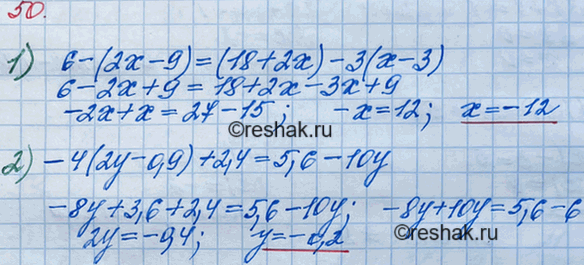 50.
1) 6-(2x-9)=(18+2x)-3(x-3)
6-2x+9=18+2x-3x+9
-2x+x=27-15; -x=12; x=-12
©reshak.ru
2) -4(2y-0,9)+2,4=5,6-10y
-8y+3,6+2,4=5,6-10y; -8y+10y=5,6-6
2y=-0,4; y=-0,2
©reshak.ru